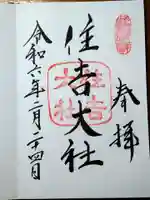 奉拝
住吉大社
住吉大社
令和六年二月二十四日